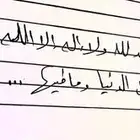 لله ولا اله الا الله
الدنيا وما فيها ...